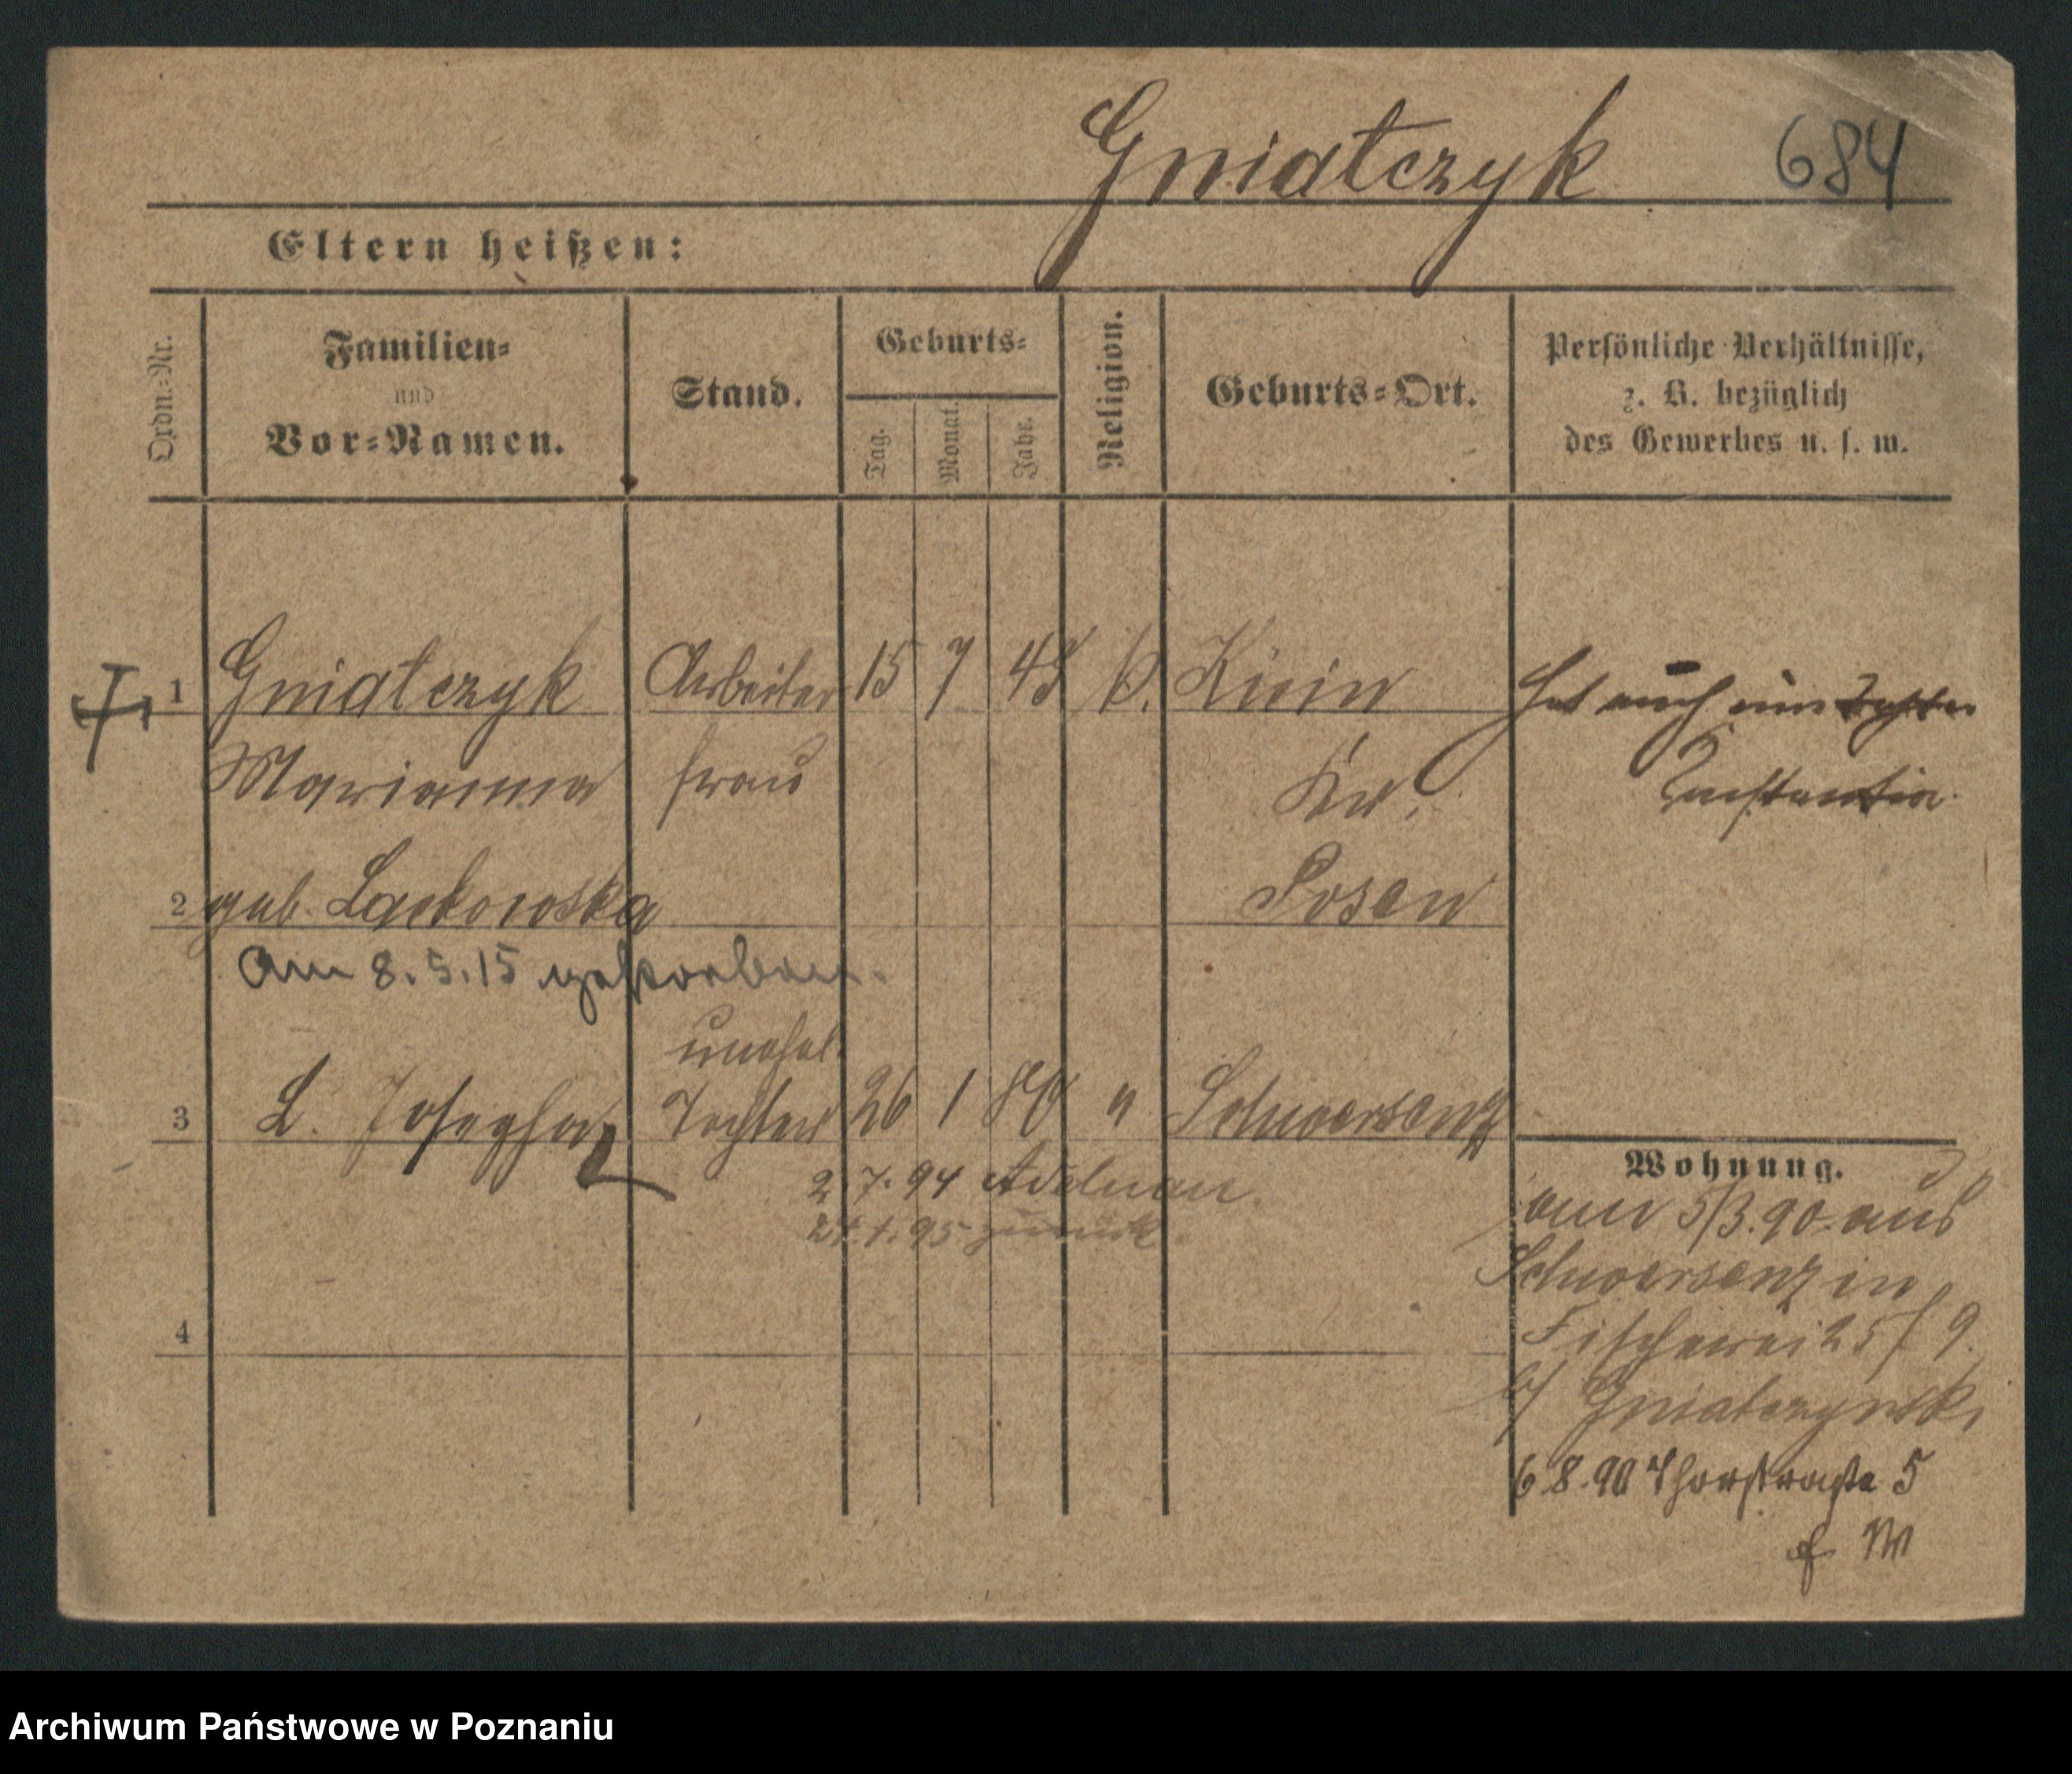 Gniatczyk 684
Eltern heißen:
Ordn.-Nr.
Familien-
und
Vor-Namen.
Stand.
Geburts-
Tag.
Monat.
Jahr.
Religion.
Geburts-Ort.
Persönliche Verhältnisse,
z. B. bezüglich
des Gewerbes u. s. w.
1 Gniatczyk Arbeiter 15 7 48 k. Hat auch eine Tochter
Marianna frau Kr.
2 geb. Lackowska Posen
Am 8.5.15 gestorben.
unehel.
3 L. Josepha Tochter 26 1 " Schwersenz
Wohnung.
2.7.94 Adelnau
95 zurück
5/3.90 aus
Schwersenz in
Fischerei 25/9.
b/ Gniatczynski
6.8.90 Thorstraße 5
4
Archiwum Państwowe w Poznaniu